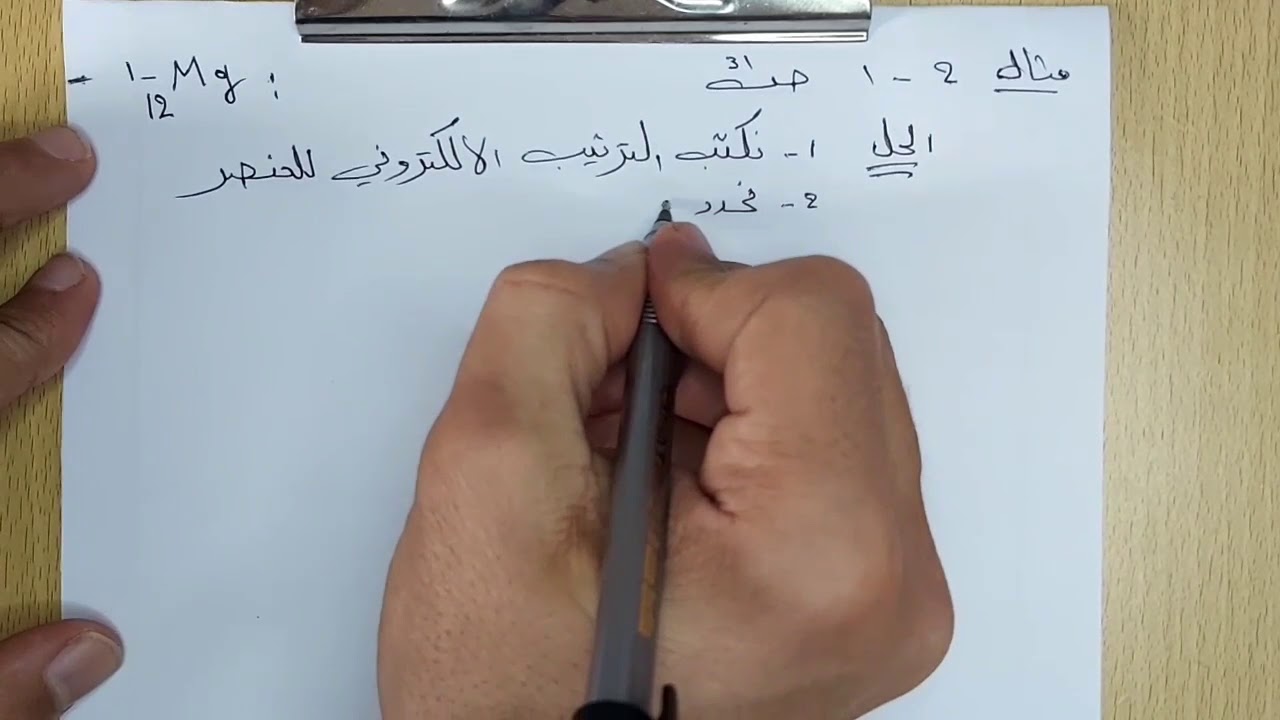 مثال 2 - 1 صـ 31
1- Mg :
12
الحل 1- نكتب الترتيب الالكتروني للعنصر
2- نحدد